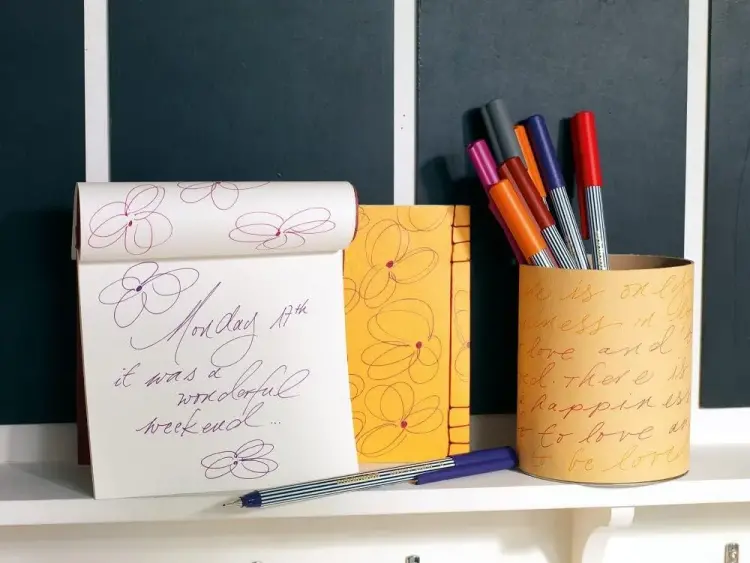 Monday 17th
it was a
wonderful
weekend...
is only
in
love and
There is
happiness
to love an
be love